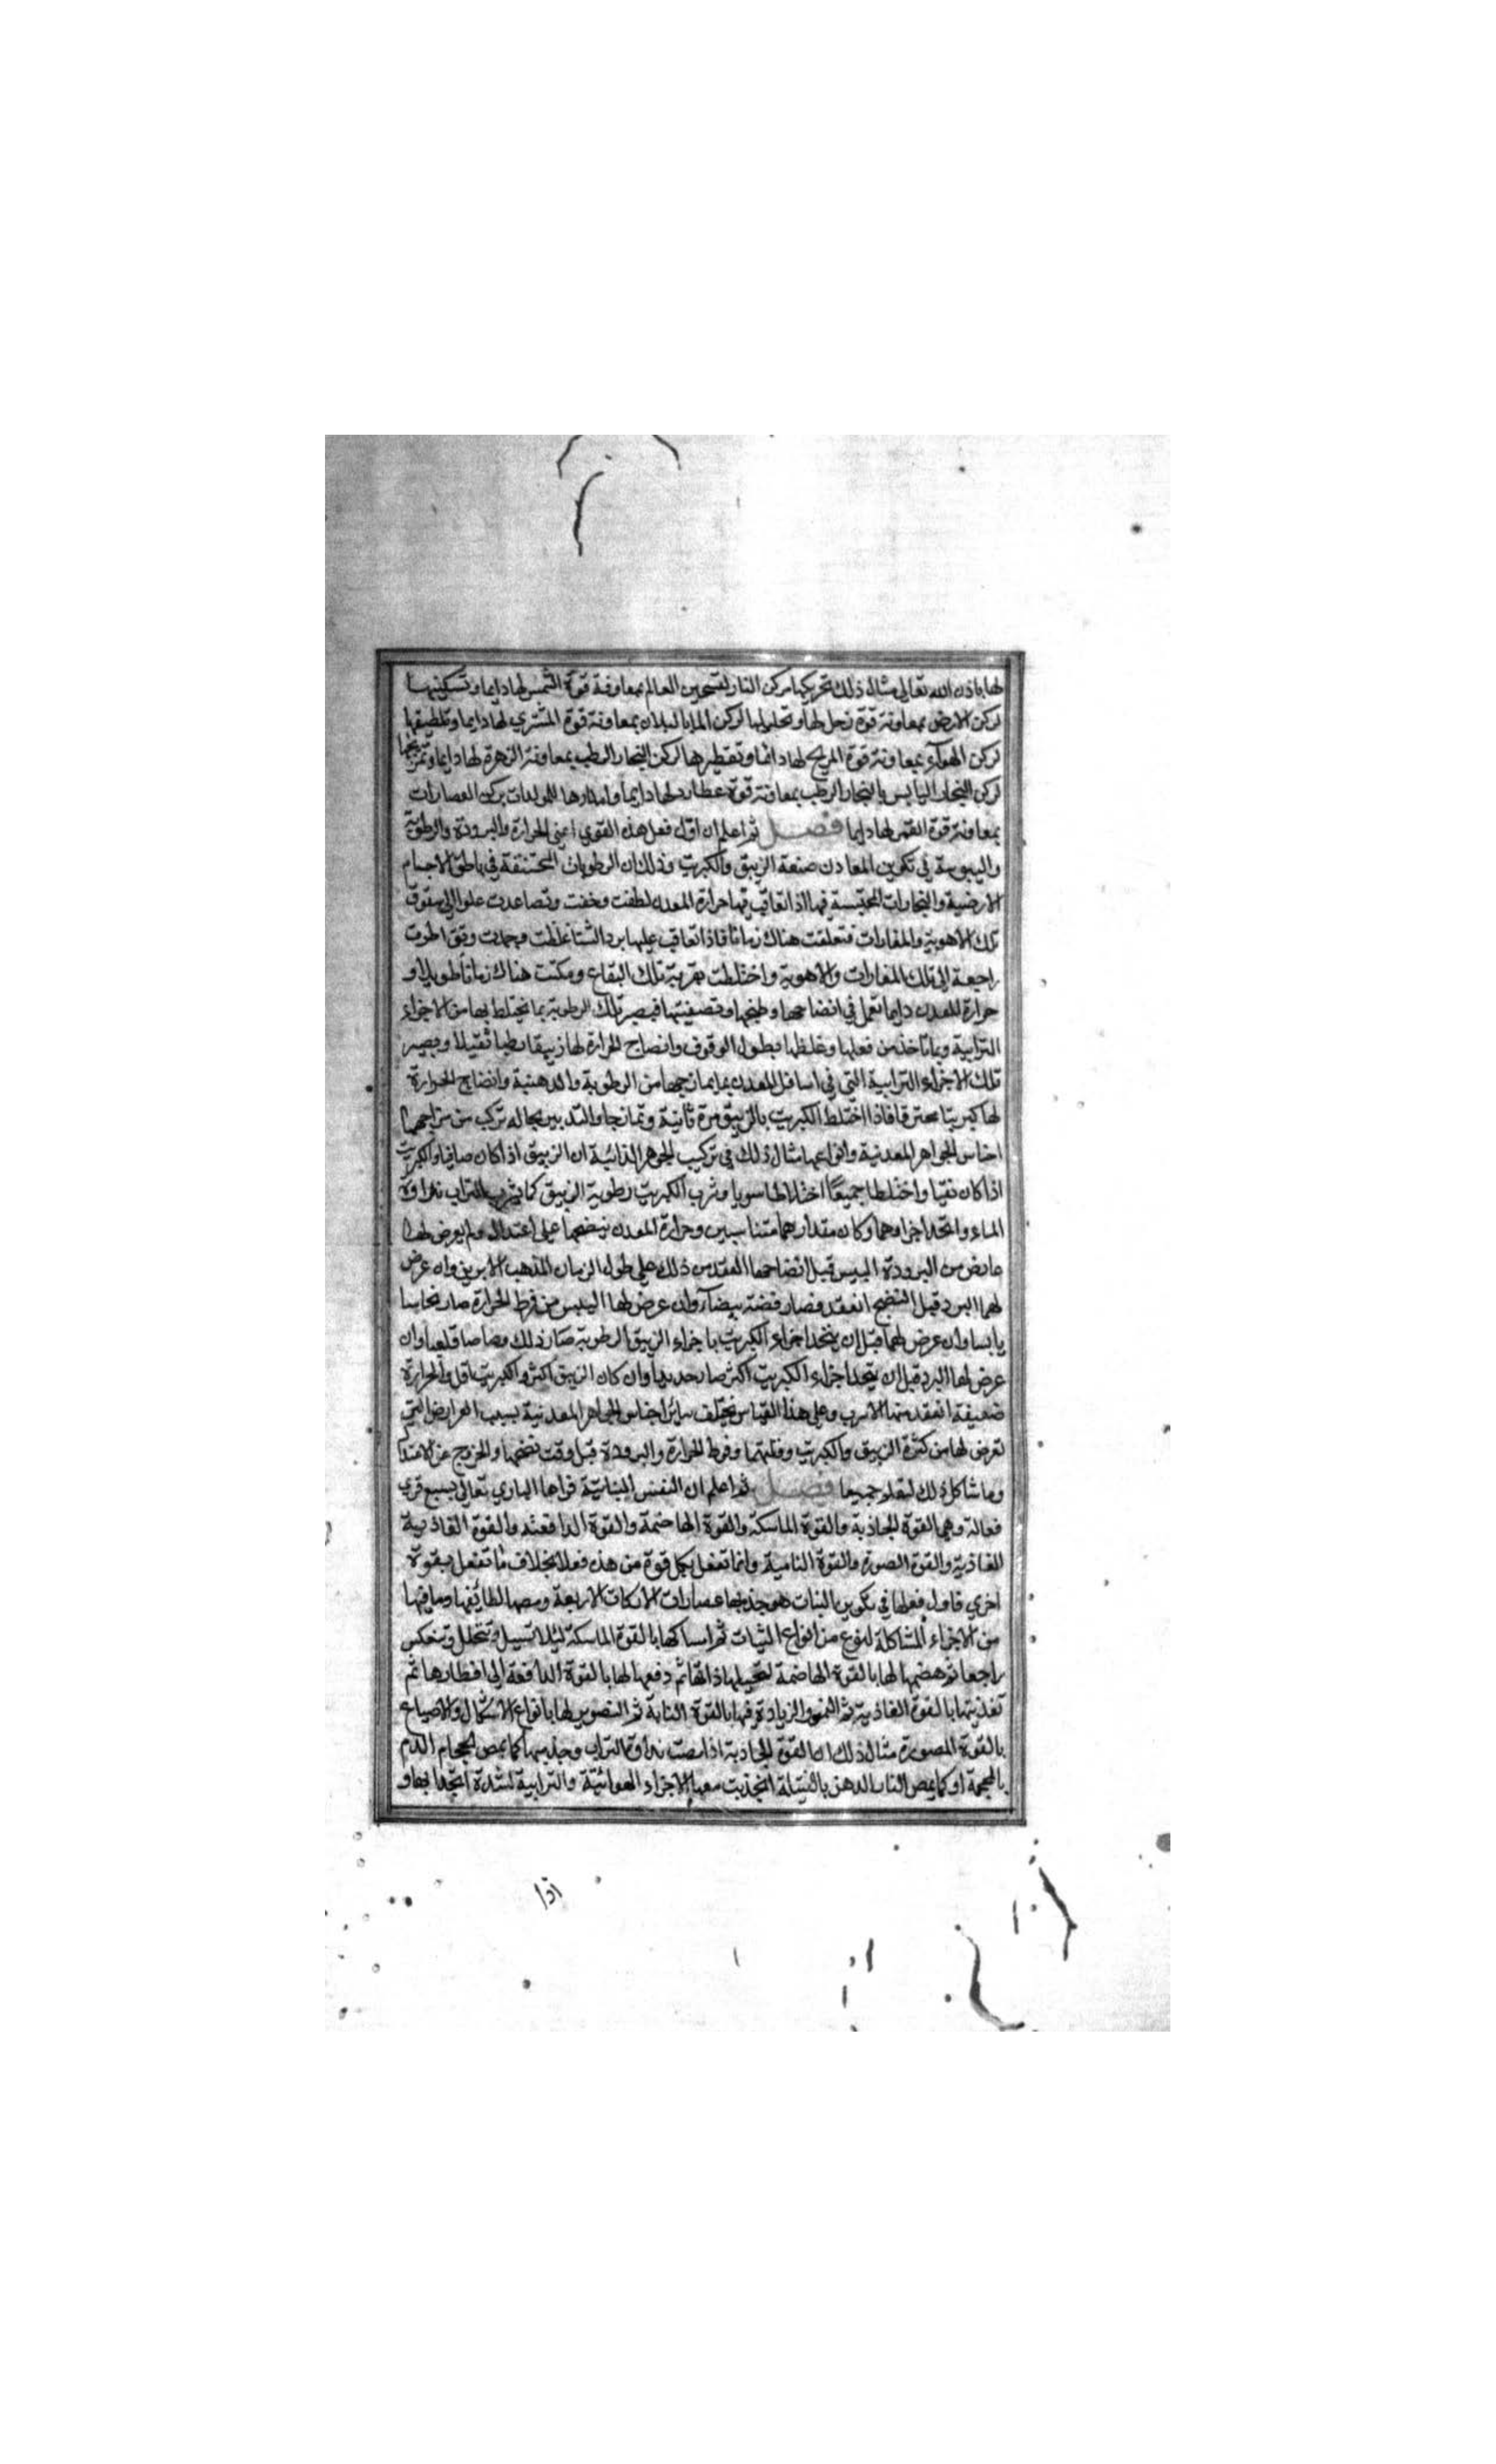 لها باذن الله تعالى مثال ذلك تحريكها مركن النار لتسخين العالم بمعاونة قوة الشمس لها دايما وتسكينها
لركن الارض بمعاونة قوة زحل لها وتحليلها لركن الما بالسيلان بمعاونة قوة المشتري لها دايما وتلطيفها
لركن الهوآء بمعاونة قوة المريخ لها دائما وتقطيرها لركن البخار الرطب بمعاونة الزهرة لها دايما وتمزيجها
لركن البخار اليابس بالبخار الرطب بمعاونة قوة عطارد لها دايما وامدادها للمولدات بركن العصارات
بمعاونة قوة القمر لها دايما فصل ثم اعلم ان اول فعل هذه القوي اعني الحرارة والبرودة والرطوبة
واليبوسة في تكوين المعادن صنعة الزيبق والكبريت وذلك ان الرطوبات المحتنقة في باطن الاجسام
الارضية والبخارات المحتبسة فيها اذا تعاقب فيها حرارة المعدن لطفت وخفت وتصاعدت علوا الى سقوف
تلك الاهوية والمغارات فتعلقت هناك زمانا فاذا تعاقب عليها برد الشتا غلظت وجمدت
راجعة الى تلك المغارات والاهوية واختلطت بتربة تلك البقاع ومكثت هناك زمانا طويلا و
حرارة المعدن دايما تعمل في انضاجها وطبخها وتصفيتها فيصير تلك الرطوبة بما يختلط بها من الاجزاء
الترابية وبما تاخذ من فعلها وغلظها بطول الوقوف وانضاج الحرارة لها زيبقا رطبا ثقيلا ويصير
تلك الاجزاء الترابية التي في اسافل المعدن بما يمازجها من الرطوبة والدهنية وانضاج الحرارة
لها كبريتا محترقا فاذا اختلط الكبريت بالزيبق مرة ثانية وتمازجا والتدبير بحاله تركب من مزاجهما
اجناس الجواهر المعدنية وانواعها مثال ذلك في تركيب الجوهر الذائبة ان الزيبق اذا كان صافيا والكبريت
اذا كان نقيا واختلطا جميعًا اختلاطا سويا وشرب الكبريت رطوبة الزيبق كما يشرب التراب نداوة
الماء واتحد اجزاوهما وكان مقدارهما متناسبين وحرارة المعدن ينضجهما على اعتدال ولم يعرض لهما
عارض من البرودة اليبس قبل انضاجهما انعقد من ذلك على طول الزمان الذهب الابريز وان عرض
لهما البرد قبل النضج انعقد فصار فضة بيضآء وان عرض لها اليبس من فرط الحرارة صار نحاسا
يابسا وان عرض لهما قبل ان يتحد اجزاء الكبريت باجزاء الزيبق الرطوبة صار ذلك رصاصا قلعيا وان
عرض لها البرد قبل ان يتحد اجزاء الكبريت اكثر صار حديدا وان كان الزيبق اكثر والكبريت اقل والحرارة
ضعيفة انعقد منها الاسرب وعلى هذا القياس يختلف سائر اجناس الجواهر المعدنية بسبب العوارض التي
تعرض لها من كثرة الزيبق والكبريت وقلتهما وفرط الحرارة والبرودة قبل وقت نضجها والخروج عن الاعتدال
وما شاكل ذلك جميعا فصل ثم اعلم ان النفس النباتية قواها الباري تعالى بسبع قوي
فعالة وهي القوة الجاذبة والقوة الماسكة والقوة الهاضمة والقوة الدافعة والقوة الغاذية
الغاذية والقوة الصورة والقوة النامية وانما تفعل بكل قوة من هذه فعلا بخلاف ما تفعل بقوة
اخري فاول فعلها في تكوين النبات هو جذبها عصارات الاركان الاربعة ومصها لطائفها وما فيها
من الاجزاء المشاكلة لنوع من انواع النبات ثم امساكها بالقوة الماسكة ليلا تسيل وتتحلل وتنعكس
راجعا ثم هضمها لها بالقوة الهاضمة ثم دفعها لها بالقوة الدافعة الى اقطارها ثم
تغذيتها بالقوة الغاذية ثم النمو والزيادة فيها بالقوة النامية ثم التصوير لها بانواع الاشكال والاصباغ
بالقوة المصورة مثال ذلك ان القوة الجاذبة اذا مصت نداوة التراب وجذبتها كما يمص الحجام الدم
بالمحجمة او كما يمص النار الدهن بالفتيلة انجذبت معها الاجزاء الهوائية والترابية لشدة اتحدا بها و
اذا